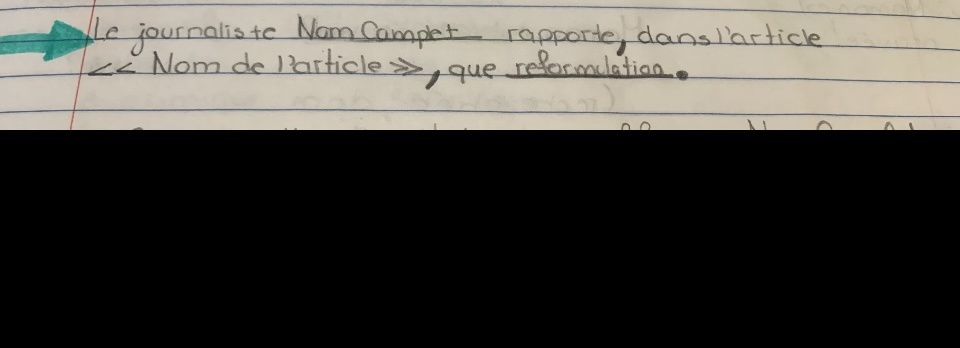 Le journaliste Nom Complet rapporte, dans l'article
<< Nom de l'article >>, que reformulation.